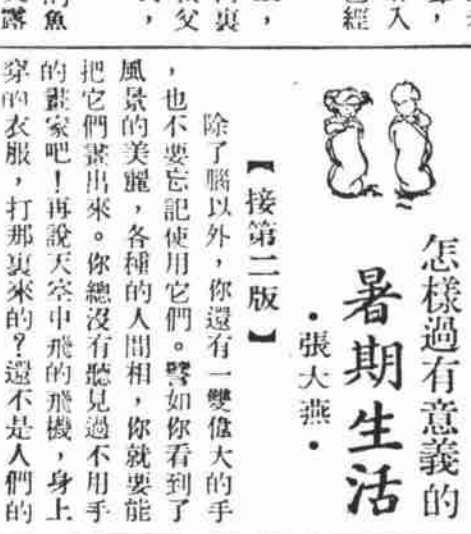 怎樣過有意義的
暑期生活
•張大燕•
【接第二版】
除了腦以外，你還有一雙偉大的手
，也不要忘記使用它們。譬如你看到了
風景的美麗，各種的人間相，你就要能
把它們畫出來。你總沒有聽見過不用手
的畫家吧！再說天空中飛的飛機，身上
穿的衣服，打那裏來的？還不是人們的